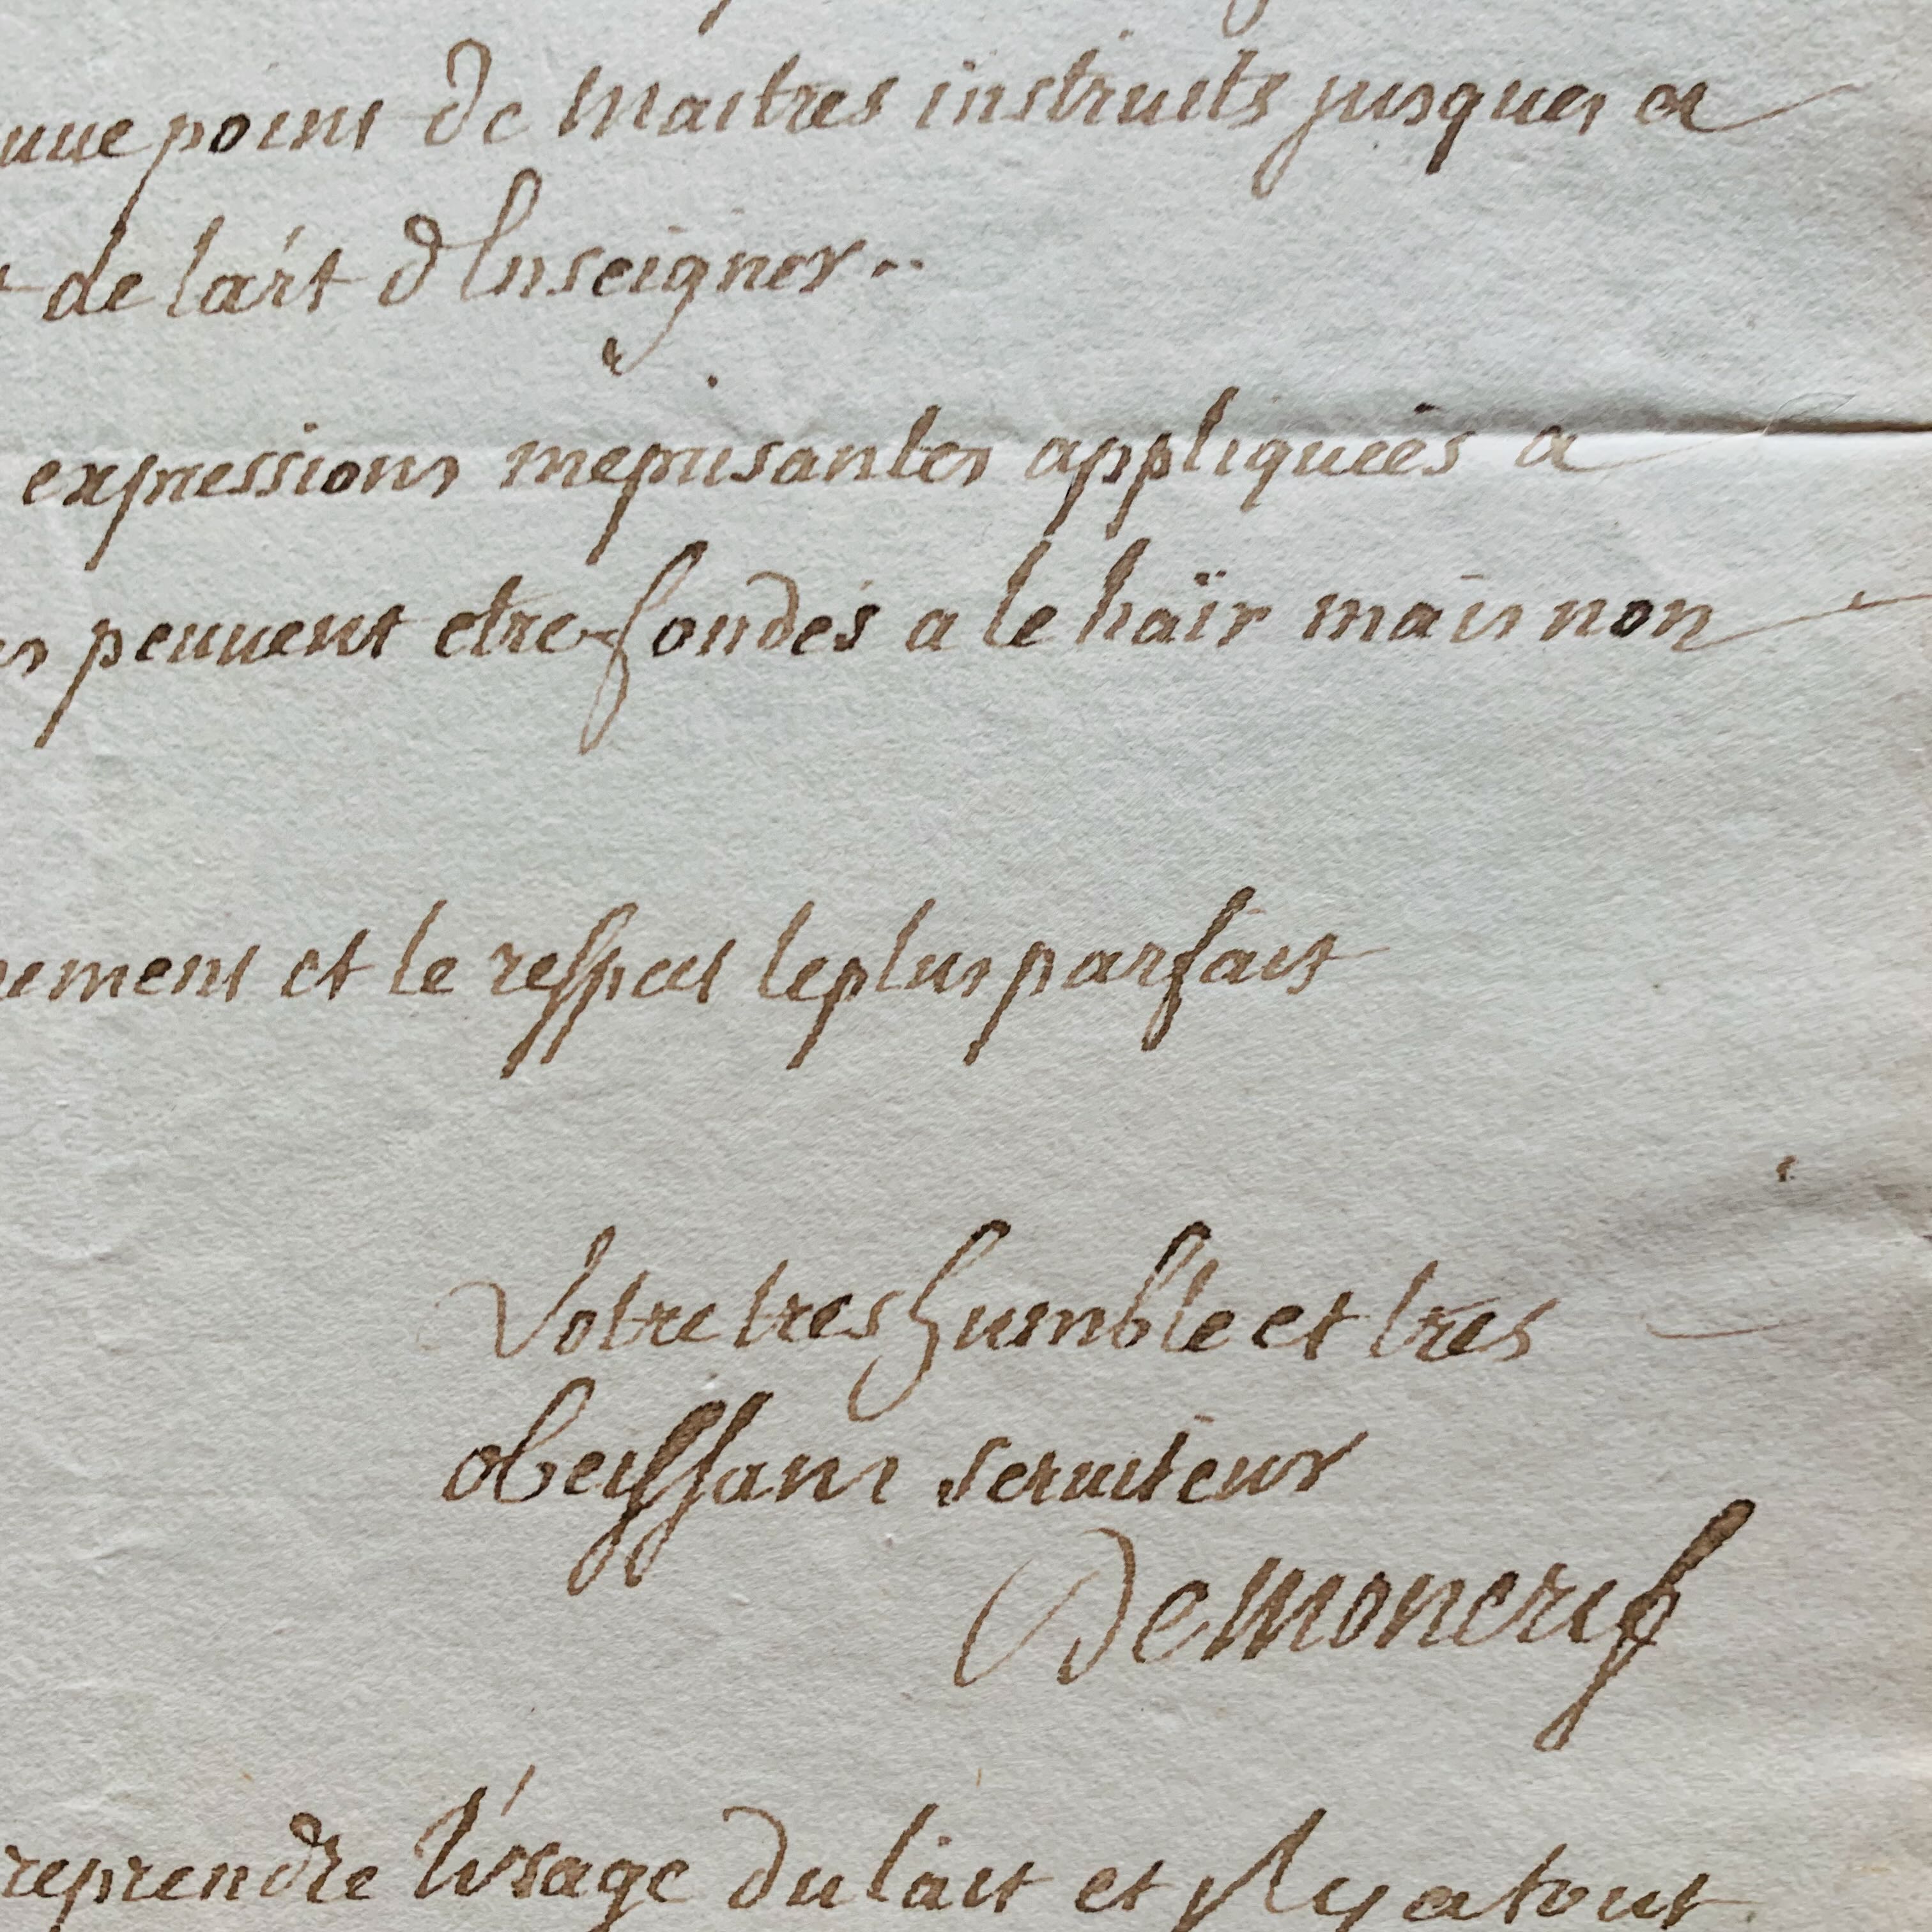 point de Maitres instruits jusques a
de l'art d'Enseigner..
expressions meprisantes appliquées a
peuuent etre fondés a le haïr mais non
et le respect le plus parfait
Votre tres humble et tres
obeissant seruiteur
De Moncrif
reprendre l'Vsage du lait et Il y a tout